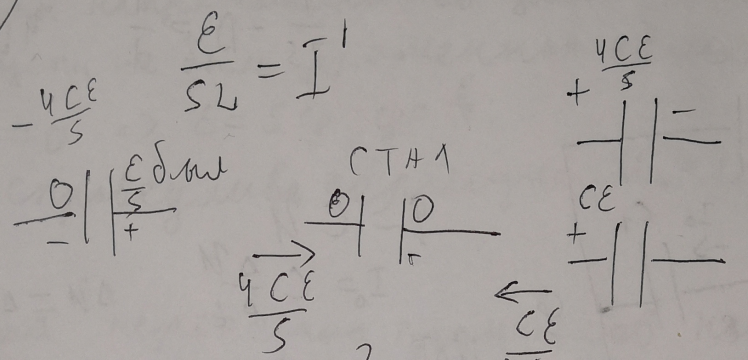 ε/5L = I'
-4Cε/5
4Cε/5
+ -
0 ε/5 был
- +
СТАЛ
0 0
-
Cε
+
4Cε/5
Cε